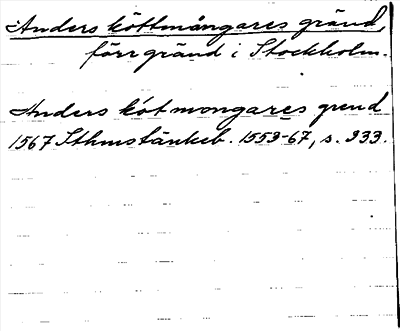 Anders köttmångares gränd,
förr gränd i Stockholm.
Anders kötmongares grend
1567 Sthmstänkeb. 1553-67, s. 233.